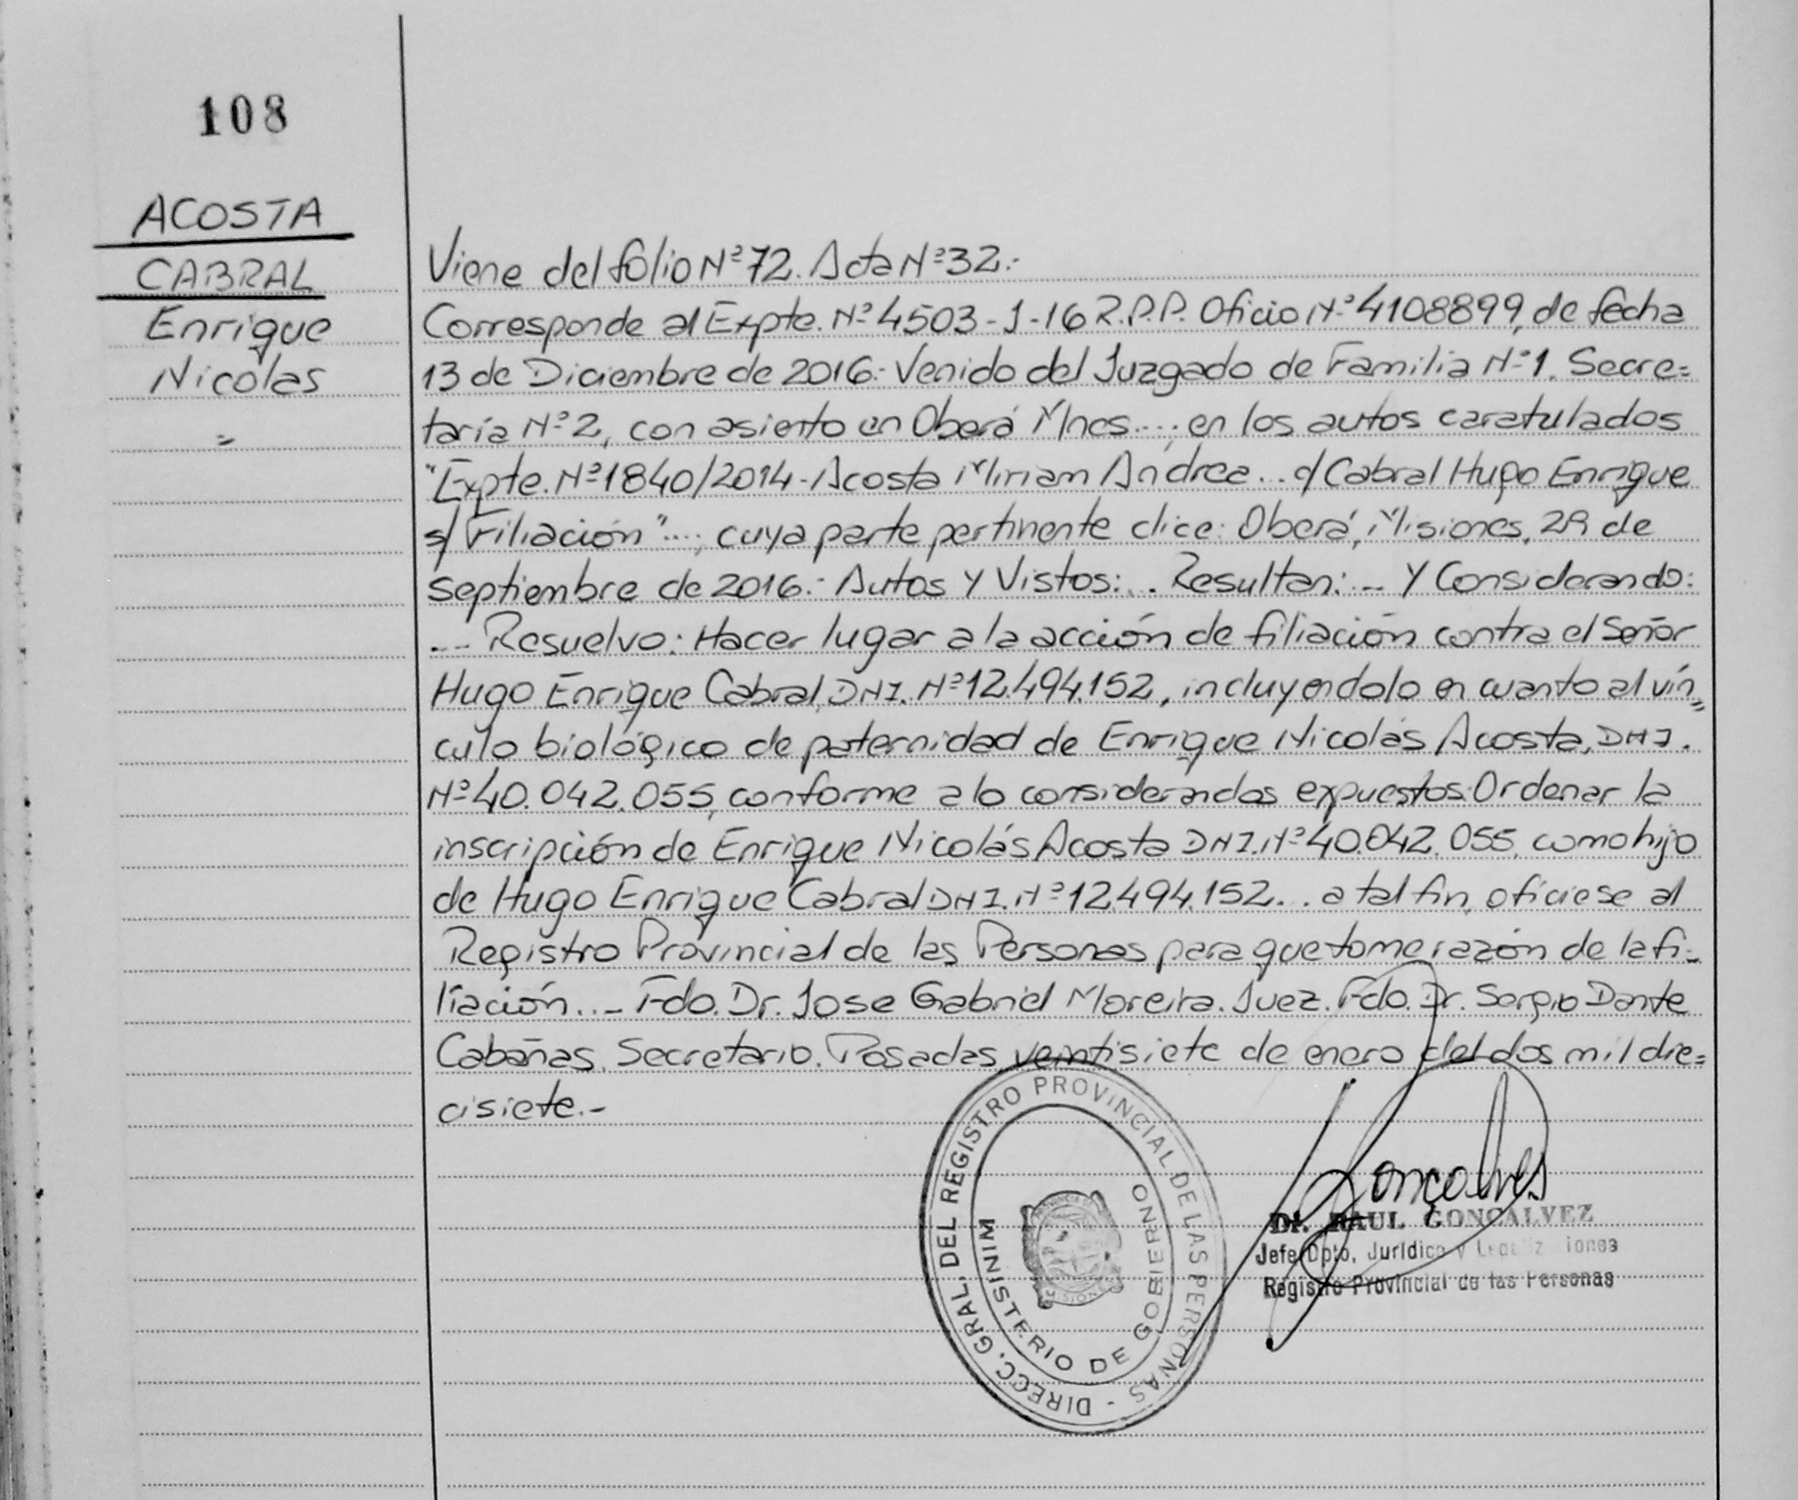 108
ACOSTA
CABRAL
Enrique
Nicolas
=
Viene del folio Nº 72. Acta Nº 32.-
Corresponde al Expte. Nº 4503-1-16 R.P.P. Oficio Nº 4108899, de fecha
13 de Diciembre de 2016.- Venido del Juzgado de Familia Nº 1. Secre=
taría Nº 2, con asiento en Oberá Mnes...; en los autos caratulados
"Expte. Nº 1840/2014 - Acosta Miriam Andrea... c/ Cabral Hugo Enrique
s/ Filiación"...; cuya parte pertinente dice: Oberá, Misiones, 29 de
septiembre de 2016.- Autos y Vistos:... Resultan:... Y Considerando:
... Resuelvo: Hacer lugar a la acción de filiación contra el Señor
Hugo Enrique Cabral, DNI. Nº 12.494.152, incluyendolo en cuanto al vín=
culo biológico de paternidad de Enrique Nicolás Acosta, DNI.
Nº 40.042.055, conforme a lo considerandos expuestos. Ordenar la
inscripción de Enrique Nicolás Acosta DNI. Nº 40.042.055, como hijo
de Hugo Enrique Cabral DNI. Nº 12.494.152... a tal fin, ofíciese al
Registro Provincial de las Personas para que tome razón de la fi-
liación... Fdo. Dr. Jose Gabriel Moreira. Juez. Fdo. Dr. Sergio Dante
Cabañas. Secretario. Posadas, veintisiete de enero del dos mil die=
cisiete.-
DIRECC. GRAL. DEL REGISTRO PROVINCIAL DE LAS PERSONAS -
MINISTERIO DE GOBIERNO
PROVINCIA
MISIONES
Gonçalves
Dr. RAUL GONCALVEZ
Jefe Dpto. Jurídico y Legalizaciones
Registro Provincial de las Personas